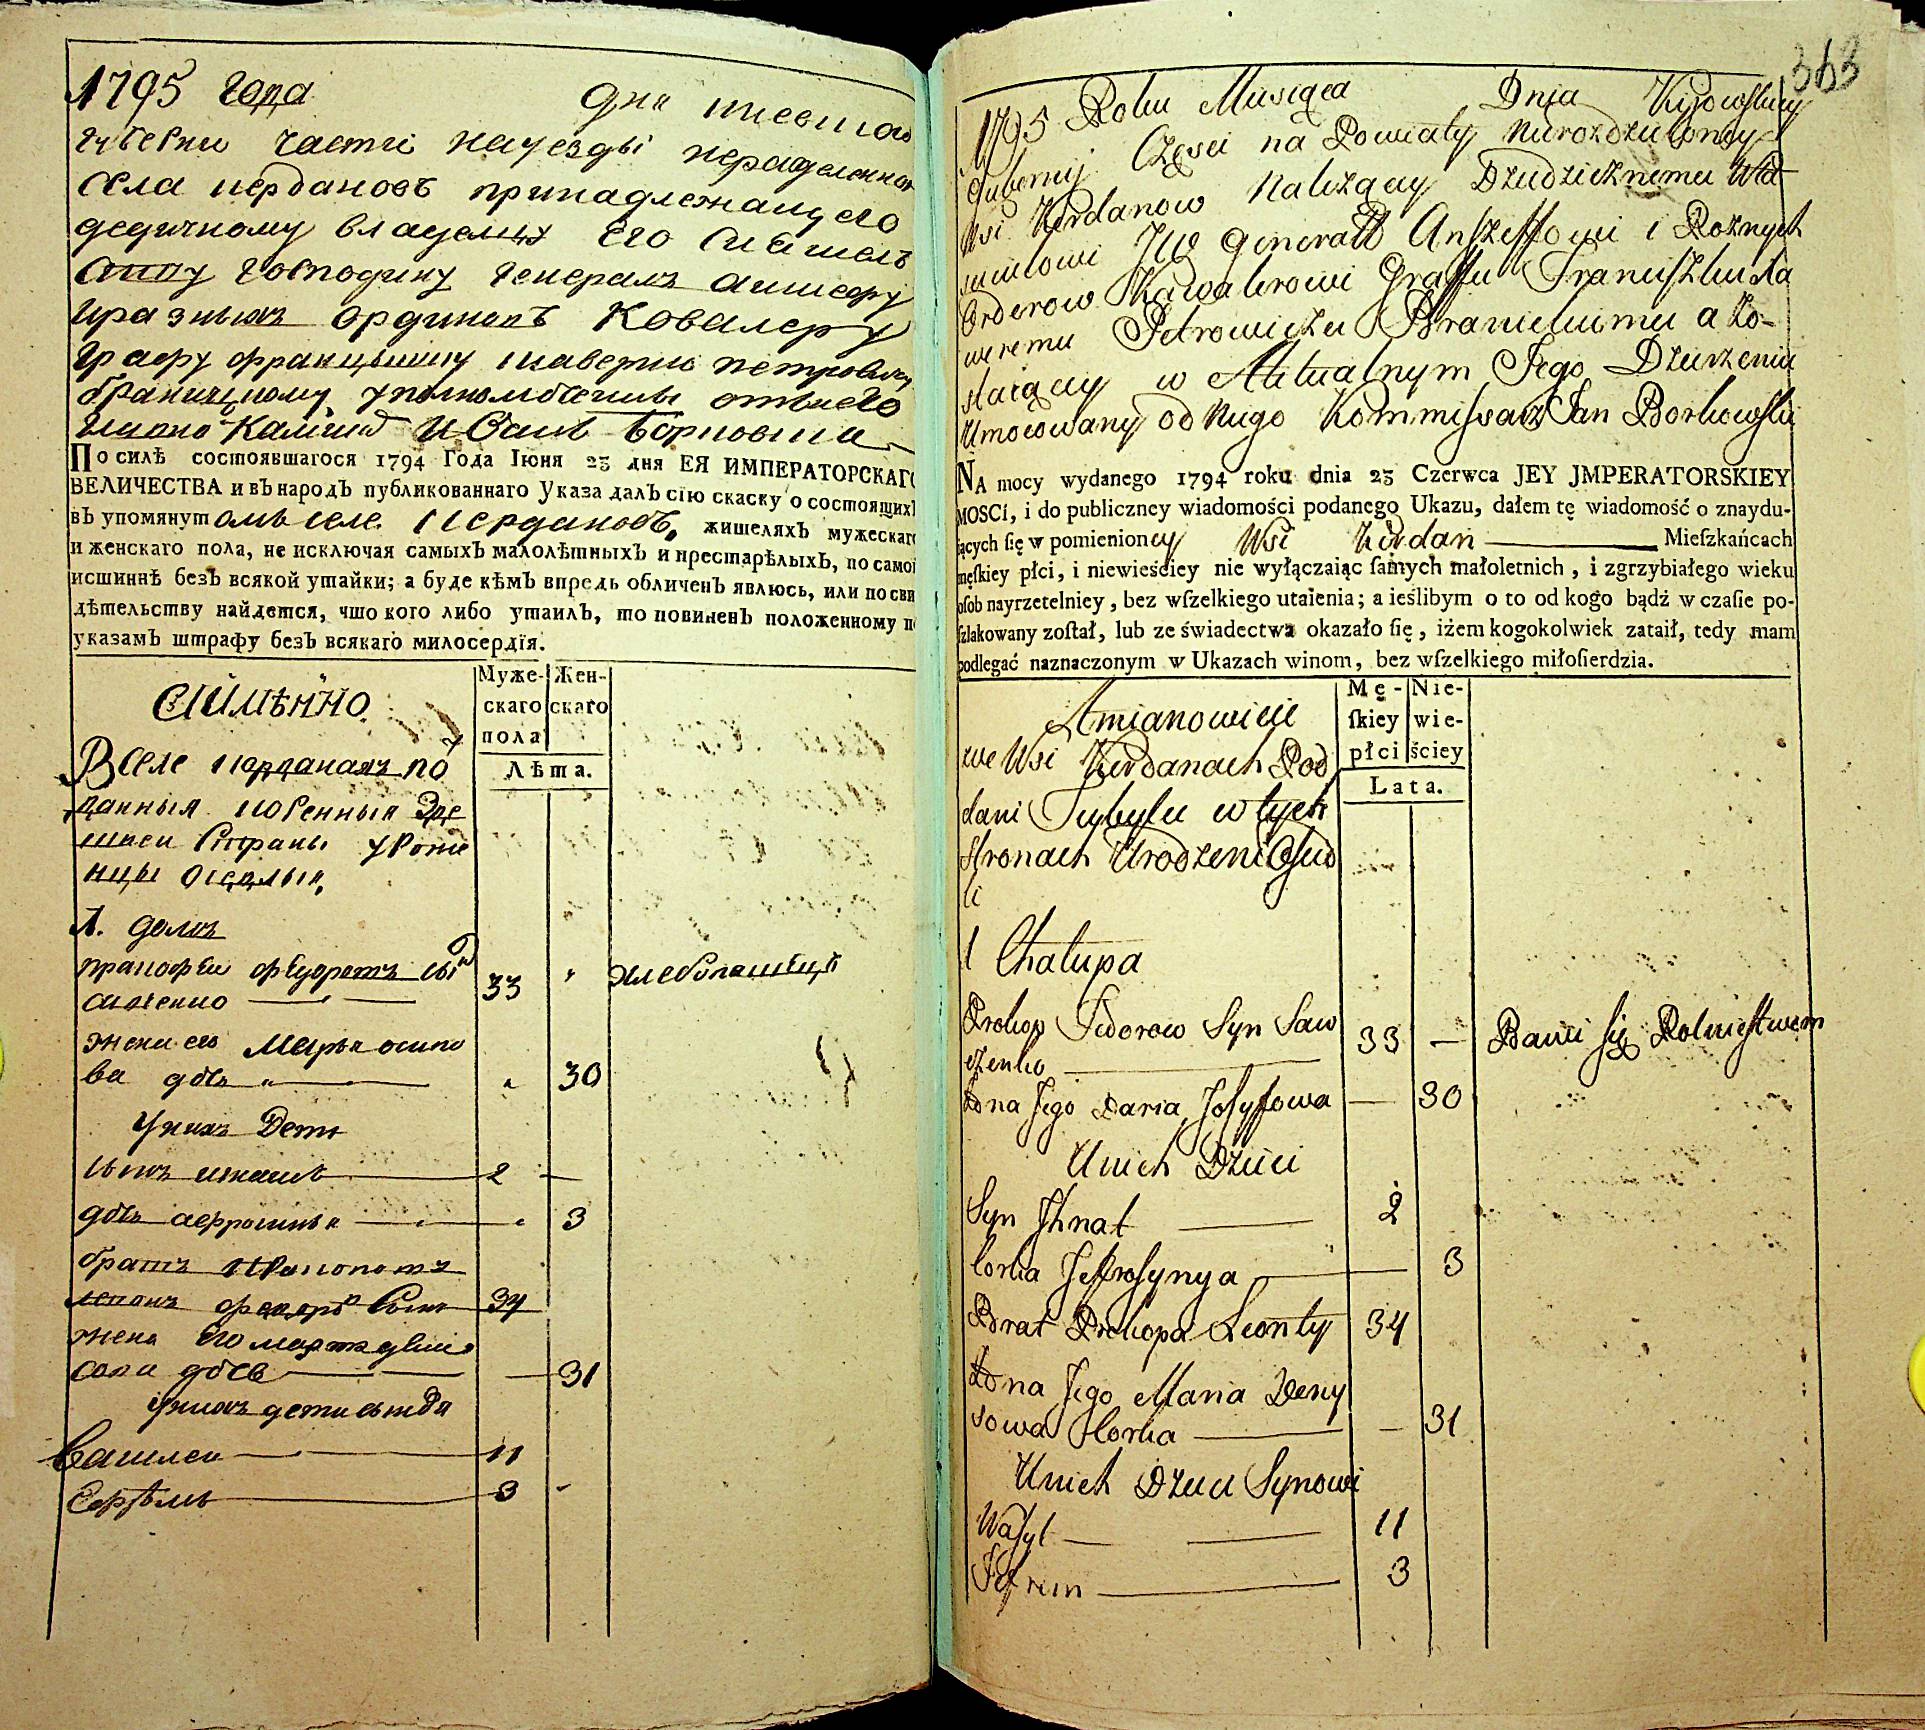 1795 года дня Киевской
губерни части науезды неразделенной
села Кердановъ принадлежащего
дедичному владелцу Его Сиятель
ству господину генералъ аншефу
и разныхъ ординовъ Ковалеру
графу францышку ксаверию петровичу
браницкому уполномоченны отнего
По силѣ состоявшагося 1794 Года Іюня 23 дня ЕЯ ИМПЕРАТОРСКАГО
ВЕЛИЧЕСТВА и въ народъ публикованнаго Указа далъ сїю скаску о состоящихъ
въ упомянутомъ селе Кердановъ, жителяхъ мужескаго
и женскаго пола, не исключая самыхъ малолѣтныхъ и престарѣлыхъ, по самой
истиннѣ безъ всякой утайки; а буде кѣмъ впредь обличенъ явлюсь, или по сви
дѣтельству найдется, что кого либо утаилъ, то повиненъ положенному по
указамъ штрафу безъ всякаго милосердїя.
Муже-
скаго
пола
Жен-
скаго
Лѣта.
Вселе Керданахъ по
данныя коренныя Зде
шнеи Страны уроже
нцы оседлыя,
1. домъ
прокофеи федоровъ сынъ
савченко 33 " хлебопашецъ
жена его Марья осипо
ва дочь " 30
Унихъ Дети
сынъ игнатъ 2
дочь " 3
братъ прокоповъ
леонъ федоровъ Сынъ 34
жена Его марья дени
сова дочь 31
Унихъ дети сыновя
Василеи 11
Ефремъ 3
363
1795 Roku Miesiąca Dnia Kijowskiey
Gubernij Częsci na Powiaty Nierozdzieloney
Wsi Kerdanow Należącey Dziedzicznemu Wła
scicielowi JW Generałł Anszeffowi i Rożnych
Orderow Kawalerowi Graffu Franciszku Xa
weremu Petrowiczu Branickiemu a Zo-
staiącey w Aktualnym Jego Dzierżeniu
Umocowany od Niego Kommissarz Jan Borkowski
NA mocy wydanego 1794 roku dnia 23 Czerwca JEY JMPERATORSKIEY
MOSCI, i do publiczney wiadomości podanego Ukazu, dałem tę wiadomość o znaydu-
iących ſię w pomienioney Wsi Kerdan Mieſzkańcach
męſkiey płci, i niewieściey nie wyłączaiąc ſamych małoletnich, i zgrzybiałego wieku
oſob nayrzetelniey, bez wſzelkiego utaienia; a ieślibym o to od kogo bądź w czaſie po-
ſzlakowany zoſtał, lub ze świadectwa okazało ſię, iżem kogokolwiek zataił, tedy mam
podlegać naznaczonym w Ukazach winom, bez wſzelkiego miłoſierdzia.
Mę-
ſkiey
płci
Nie-
wie-
ściey
Lata.
A mianowicie
we Wsi Kerdanach Pod
dani Tubylu w tych
stronach Urodzeni Osied
li
1 Chałupa
Prokop Fedorow Syn Saw
czenko 33 — Bawi się Rolnictwem
Żona Jego Daria Josyfowa — 30
U nich Dzieci
Syn Ihnat 2
Corka Jeffrosynya 3
Brat Prokopa Leonty 34
Żona Jego Maria Deny
sowa Corka — 31
U nich Dzieci Synowi
Wasyl 11
Jefrem 3